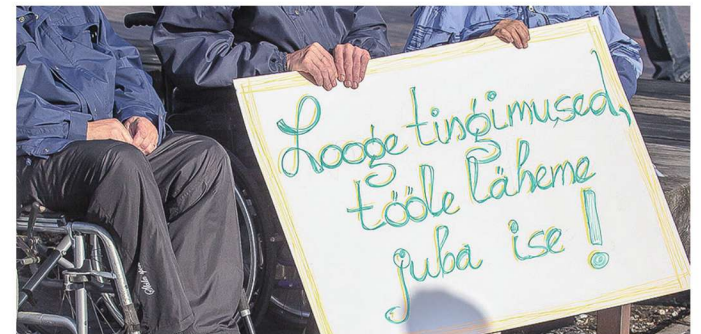 Looge tingimused,
tööle läheme
juba ise!